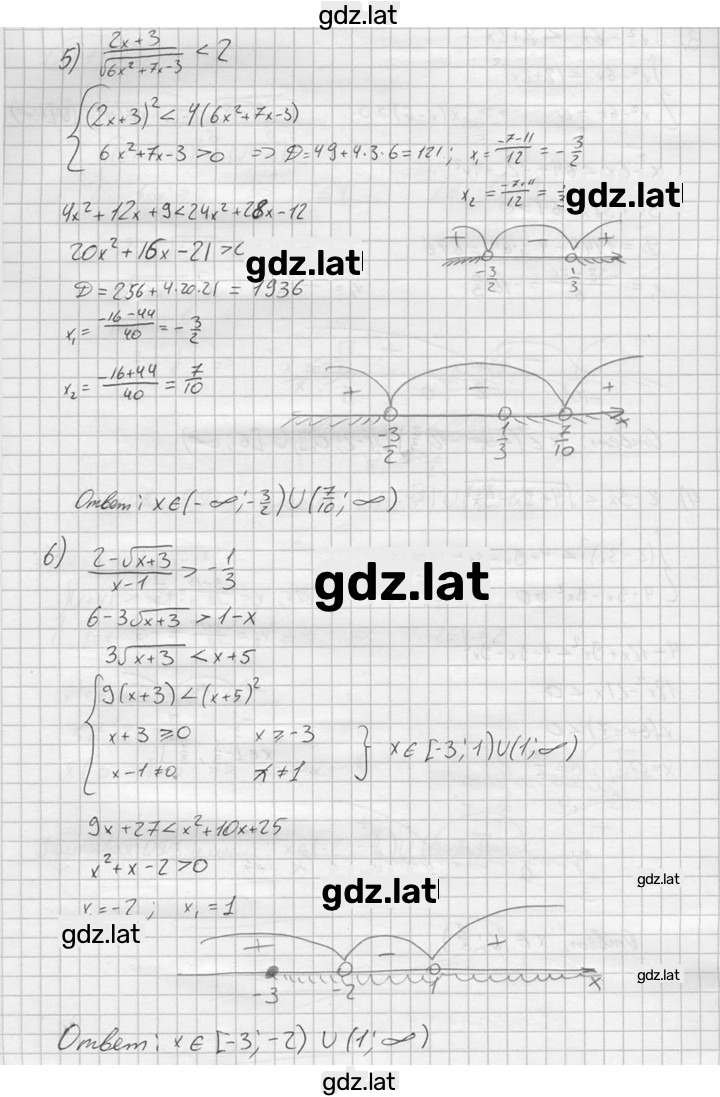 gdz.lat
5) (2x+3)/√(6x²+7x-3) < 2
(2x+3)² < 4(6x²+7x-3)
6x²+7x-3 > 0 => D = 49+4·3·6 = 121; x₁ = (-7-11)/12 = -3/2
x₂ = (-7+11)/12 =
gdz.lat
4x²+12x+9<24x²+28x-12
20x²+16x-21>
gdz.lat
+ - +
-3/2 1/3
D = 256+4·20·21 = 1936
x₁ = (-16-44)/40 = -3/2
x₂ = (-16+44)/40 = 7/10
+ - +
-3/2 1/3 7/10 x
Ответ: x∈(-∞; -3/2)∪(7/10; ∞)
6) (2-√(x+3))/(x-1) > -1/3
gdz.lat
6-3√(x+3) > 1-x
3√(x+3) < x+5
9(x+3) < (x+5)²
x+3 ⩾ 0 x ⩾ -3
x∈[-3; 1)∪(1; ∞)
x-1≠0 x≠1
9x+27<x²+10x+25
x²+x-2>0
gdz.lat
gdz.lat
x = -2; x₁ = 1
gdz.lat
+ - +
gdz.lat
-3 -2 1 x
Ответ: x∈[-3; -2) ∪ (1; ∞)
gdz.lat